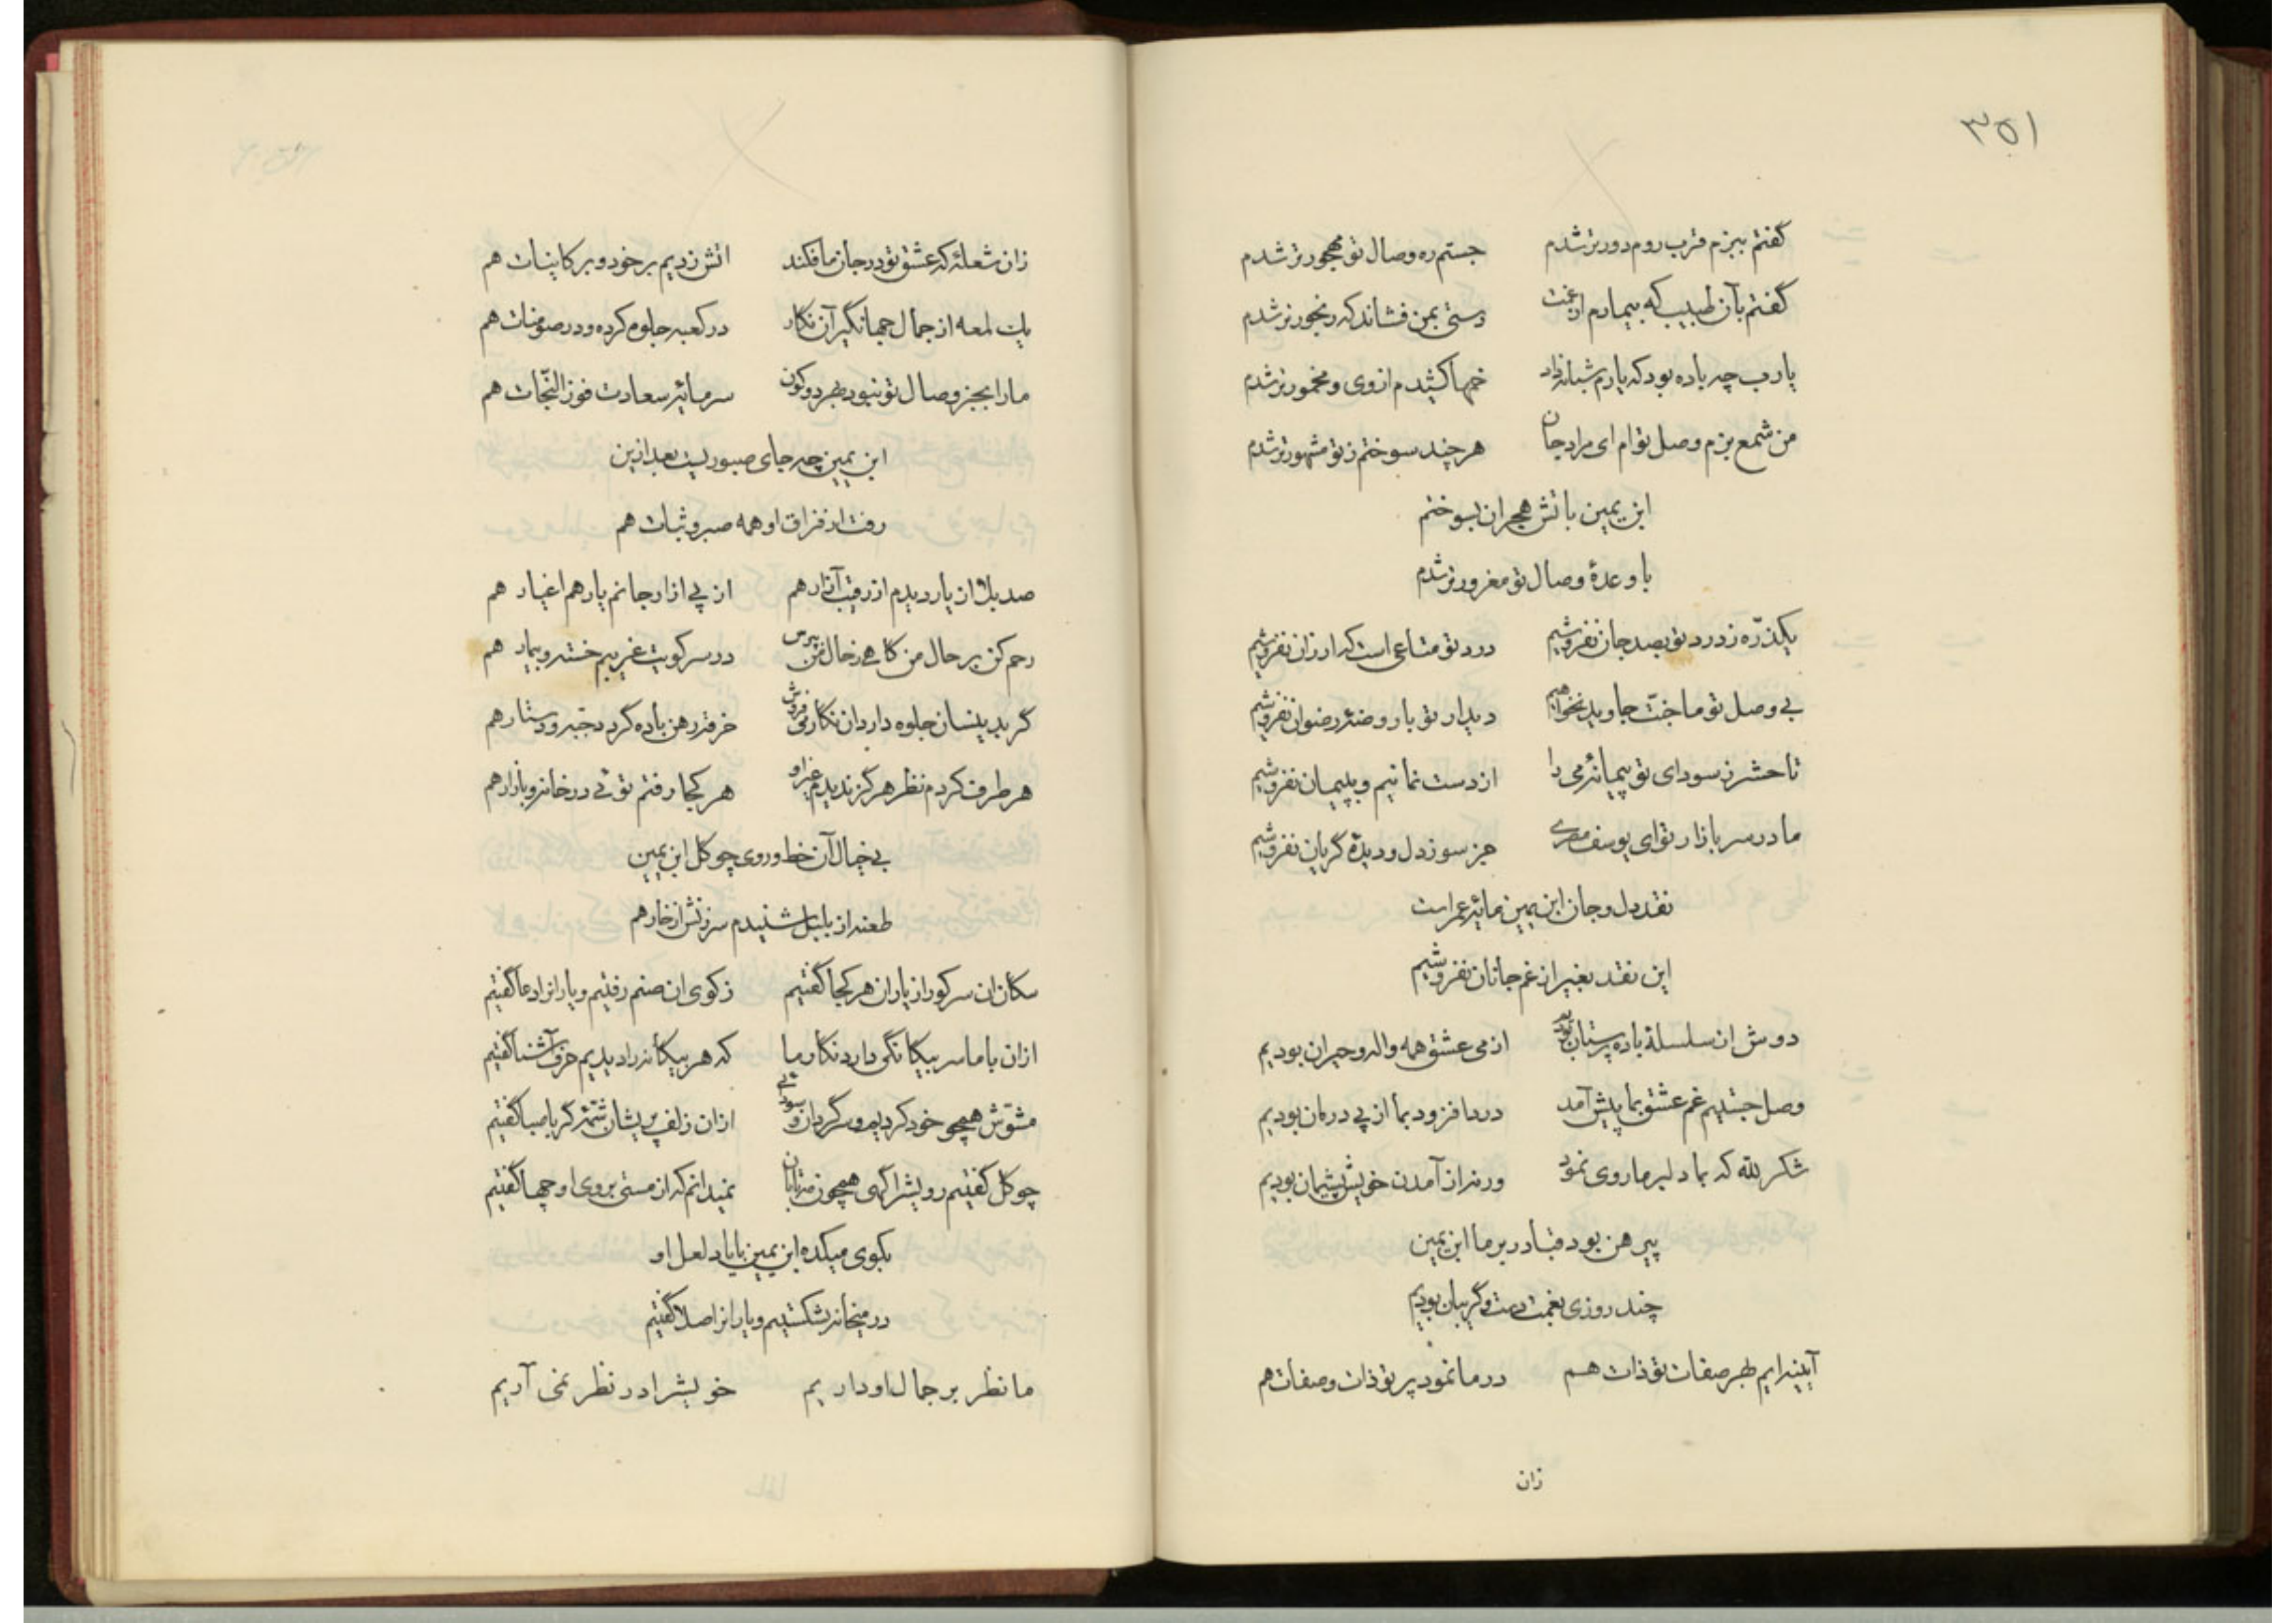 ۳۵۱
گفتم ببزم قرب روم دورتر شدم جستم ره وصال تو مهجورتر شدم
گفتم بآن طبیب که بیمارم از غمت دستی بمن فشاند که رنجورتر شدم
یارب چه باده بود که یارم شبانه داد خمها کشیدم از وی و مخمورتر شدم
من شمع بزم وصل توام ای مراد جان هر چند سوختم ز تو مشهورتر شدم
ابن یمین باتش هجران بسوختم
با وعدهٔ وصال تو مغرورتر شدم
یکذرّه ز درد تو بصد جان نفروشیم درد تو متاعی است که ارزان نفروشیم
بی وصل تو ما جنّت جاوید نخواهیم دیدار تو با روضهٔ رضوان نفروشیم
تا حشر ز سودای تو پیمانهٔ می را از دست نمانیم و بپیمان نفروشیم
ما در سر بازار تو ای یوسف مصری جز سوز دل و دیدهٔ گریان نفروشیم
نقد دل و جان ابن یمین مایهٔ عمر است
این نقد بغیر از غم جانان نفروشیم
دوش ان سلسلهٔ باده پرستان بودیم از می عشق همه واله و حیران بودیم
وصل جستیم غم عشق بما پیش آمد درد ما فزود بما از پی درمان بودیم
شکر لله که بما دلبر ما روی نمود ورنه از آمدن خویش پشیمان بودیم
پیرهن بود قبا در بر ما ابن یمین
چند روزی بغمت دست و گریبان بودیم
آیینه ایم بهر صفات تو ذات هم در ما نمود پرتو ذات و صفات هم
زان
زان شعلهٔ که عشق تو در جان ما فکند اتش زدیم بر خود و بر کاینات هم
یک لمعه از جمال جهانگیر آن نگار در کعبه جلوه کرده و در سومنات هم
ما را بجز وصال تو نبود بهر دو کون سرمایهٔ سعادت فوز النّجات هم
ابن یمین چه جای صبوریست بعد ازین
رفت از فراق او همه صبر و ثبات هم
صد بلا از یار دیدم از رقیب آزار هم از پی ازار جانم یار هم اغیار هم
رحم کن بر حال من کاهی ز حال من بپرس در سر کویت غریبم خسته و بیمار هم
گر بدینسان جلوه دارد ان نگار می فروش خرقه رهن باده گردد جبه و دستار هم
هر طرف کردم نظر هرگز ندیدم غیر او هر کجا رفتم توئی در خانه و بازار هم
بی خیال آن خط و روی چو گل ابن یمین
طعنه از بلبل شنیدم سرزنش از خار هم
سکان ان سر کو را ز یاران هر کجا گفتیم ز کوی ان صنم رفتیم و یارانرا دعا گفتیم
ازان با ما سر بیگانگی دارد نگار ما که هر بیگانه را دیدیم حرف آشنا گفتیم
مشوّش همچو خود کردیم و سرگردان و سودائی ازان زلف پریشان شمّهٔ گر با صبا گفتیم
چو گل گفتیم رویشرا گهی همچون مه تابان نمیدانم که از مستی بروی او چها گفتیم
بکوی میکده ابن یمین با یاد لعل او
در میخانه بشکستیم و یارانرا صلا گفتیم
ما نظر بر جمال او داریم خویشرا در نظر نمی آریم